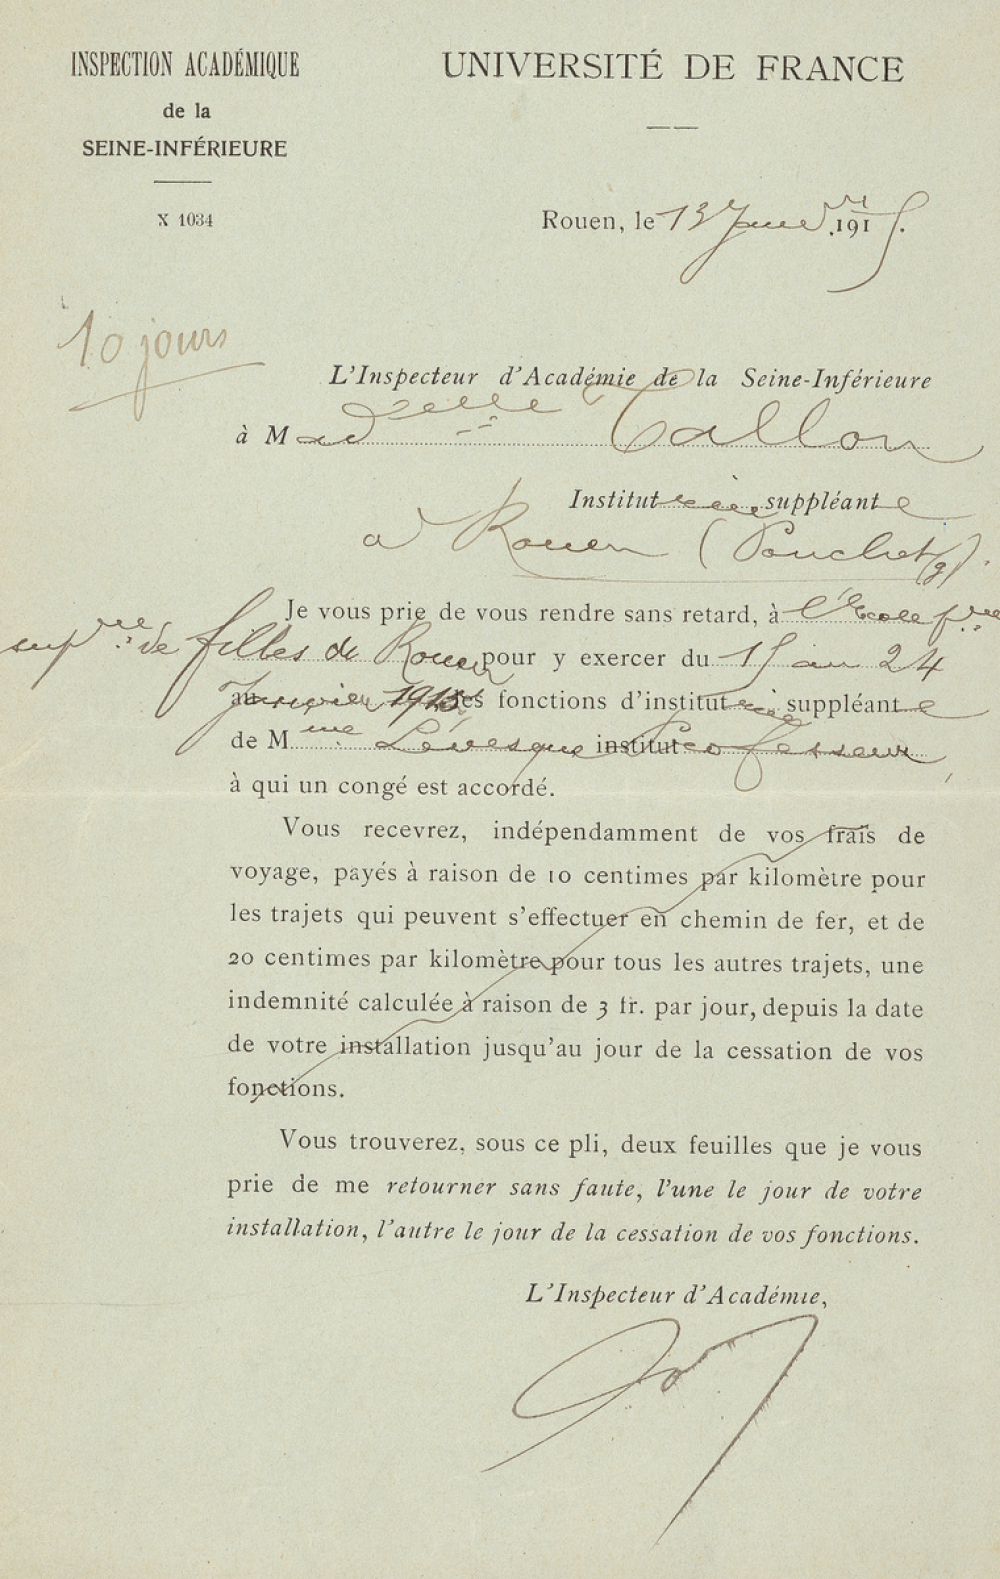 INSPECTION ACADÉMIQUE
de la
SEINE-INFÉRIEURE
X 1034
UNIVERSITÉ DE FRANCE
Rouen, le 13 Janvier 1915.
10 jours
L'Inspecteur d'Académie de la Seine-Inférieure
à Mademoiselle Callon
Institutrice suppléante
à Rouen (Pouchet g).
Je vous prie de vous rendre sans retard, à l'Ecole pre
supre de filles de Rouen pour y exercer du 15 au 24
Janvier 1915 les fonctions d'institutrice suppléante
de Mme Lévesque institut Professeur,
à qui un congé est accordé.
Vous recevrez, indépendamment de vos frais de
voyage, payés à raison de 10 centimes par kilomètre pour
les trajets qui peuvent s'effectuer en chemin de fer, et de
20 centimes par kilomètre pour tous les autres trajets, une
indemnité calculée à raison de 3 fr. par jour, depuis la date
de votre installation jusqu'au jour de la cessation de vos
fonctions.
Vous trouverez, sous ce pli, deux feuilles que je vous
prie de me retourner sans faute, l'une le jour de votre
installation, l'autre le jour de la cessation de vos fonctions.
L'Inspecteur d'Académie,